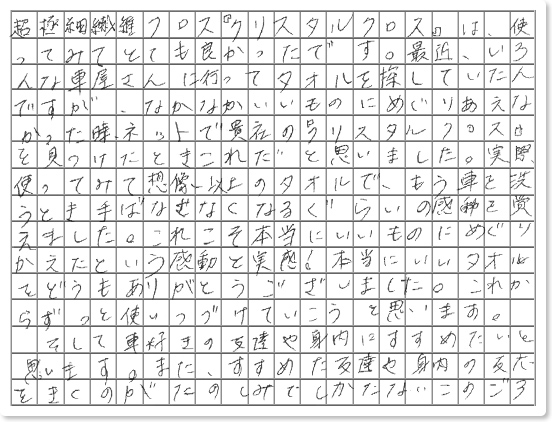 超極細繊維クロス『クリスタルクロス』は、使
ってみてとても良かったです。最近、いろ
んな車屋さんに行ってタオルを探していたん
ですが、なかなかいいものにめぐりあえな
かった時、ネットで貴社のクリスタルクロス
を見つけたときこれだ!と思いました。実際
使ってみて想像以上のタオルで、もう車を洗
うとき手ばなせなくなるぐらいの感動を覚
えました。これこそ本当にいいものにめぐり
あえたという感動と実感!本当にいいタオル
をどうもありがとうございました。これか
らずっと使いつづけていこうと思います。
そして車好きの友達や身内にすすめたいと
思います。また、すすめた友達や身内の反応
をきくのがたのしみでしかたないこのごろ